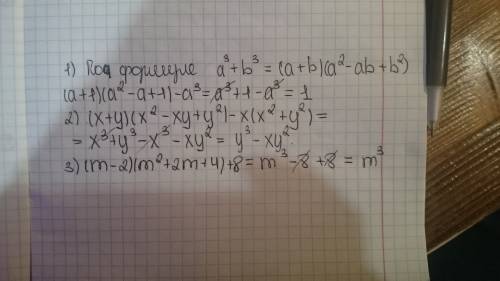 1) По формуле a³+b³ = (a+b)(a²-ab+b²)
(a+1)(a²-a+1)-a³=a³+1-a³=1
2) (x+y)(x²-xy+y²)-x(x²+y²)=
= x³+y³-x³-xy² = y³-xy².
3) (m-2)(m²+2m+4)+8= m³-8+8 = m³